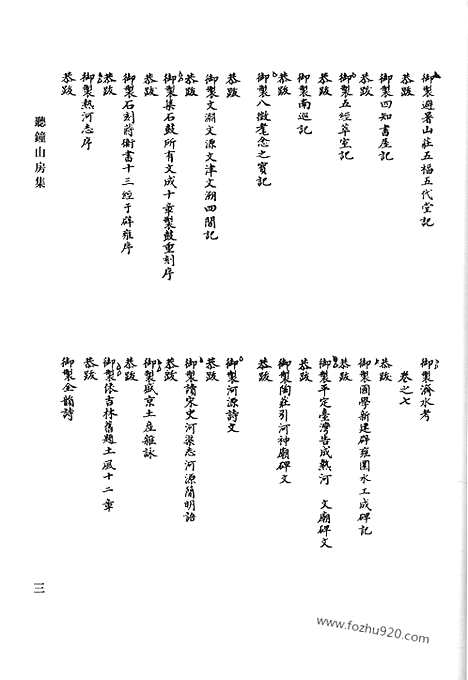 御製避暑山莊五福五代堂記
恭跋
御製四知書屋記
恭跋
御製五經萃室記
恭跋
御製南巡記
恭跋
御製八徵耄念之寶記
恭跋
御製文淵文源文津文溯四閣記
恭跋
御製集石鼓所有文成十章製鼓重刻序
恭跋
御製石刻蔣衡書十三經于辟雍序
恭跋
御製熱河志序
恭跋
御製濟水考
卷之七
恭跋
御製國學新建辟雍圜水工成碑記
恭跋
御製平定臺灣告成熱河 文廟碑文
恭跋
御製陶莊引河神廟碑文
恭跋
御製河源詩文
恭跋
御製讀宋史河渠志河源簡明語
恭跋
御製盛京土產雜詠
恭跋
御製依吉林舊題土風十二章
恭跋
御製全韻詩
聽鐘山房集
三
www.fozhu920.com